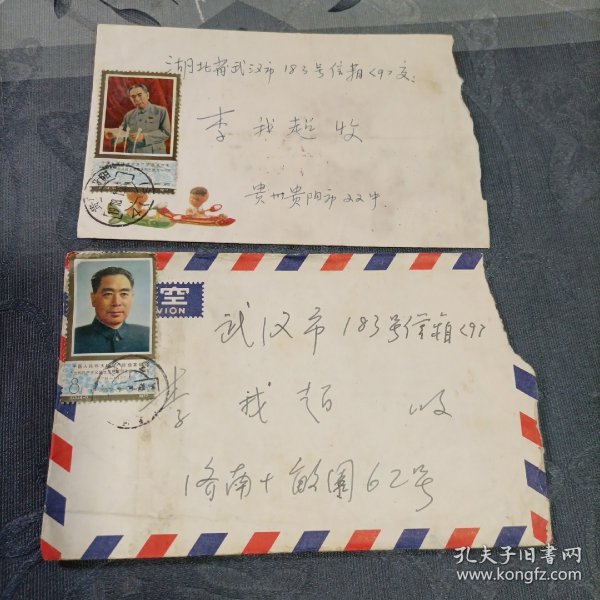 湖北省武汉市183号信箱〈9〉交:
李我超 收
贵州贵阳市又中.
空
VION
武汉市183号信箱〈9〉
李我超 收
8
济南十亩園62号
孔夫子旧书网
www.kongfz.com